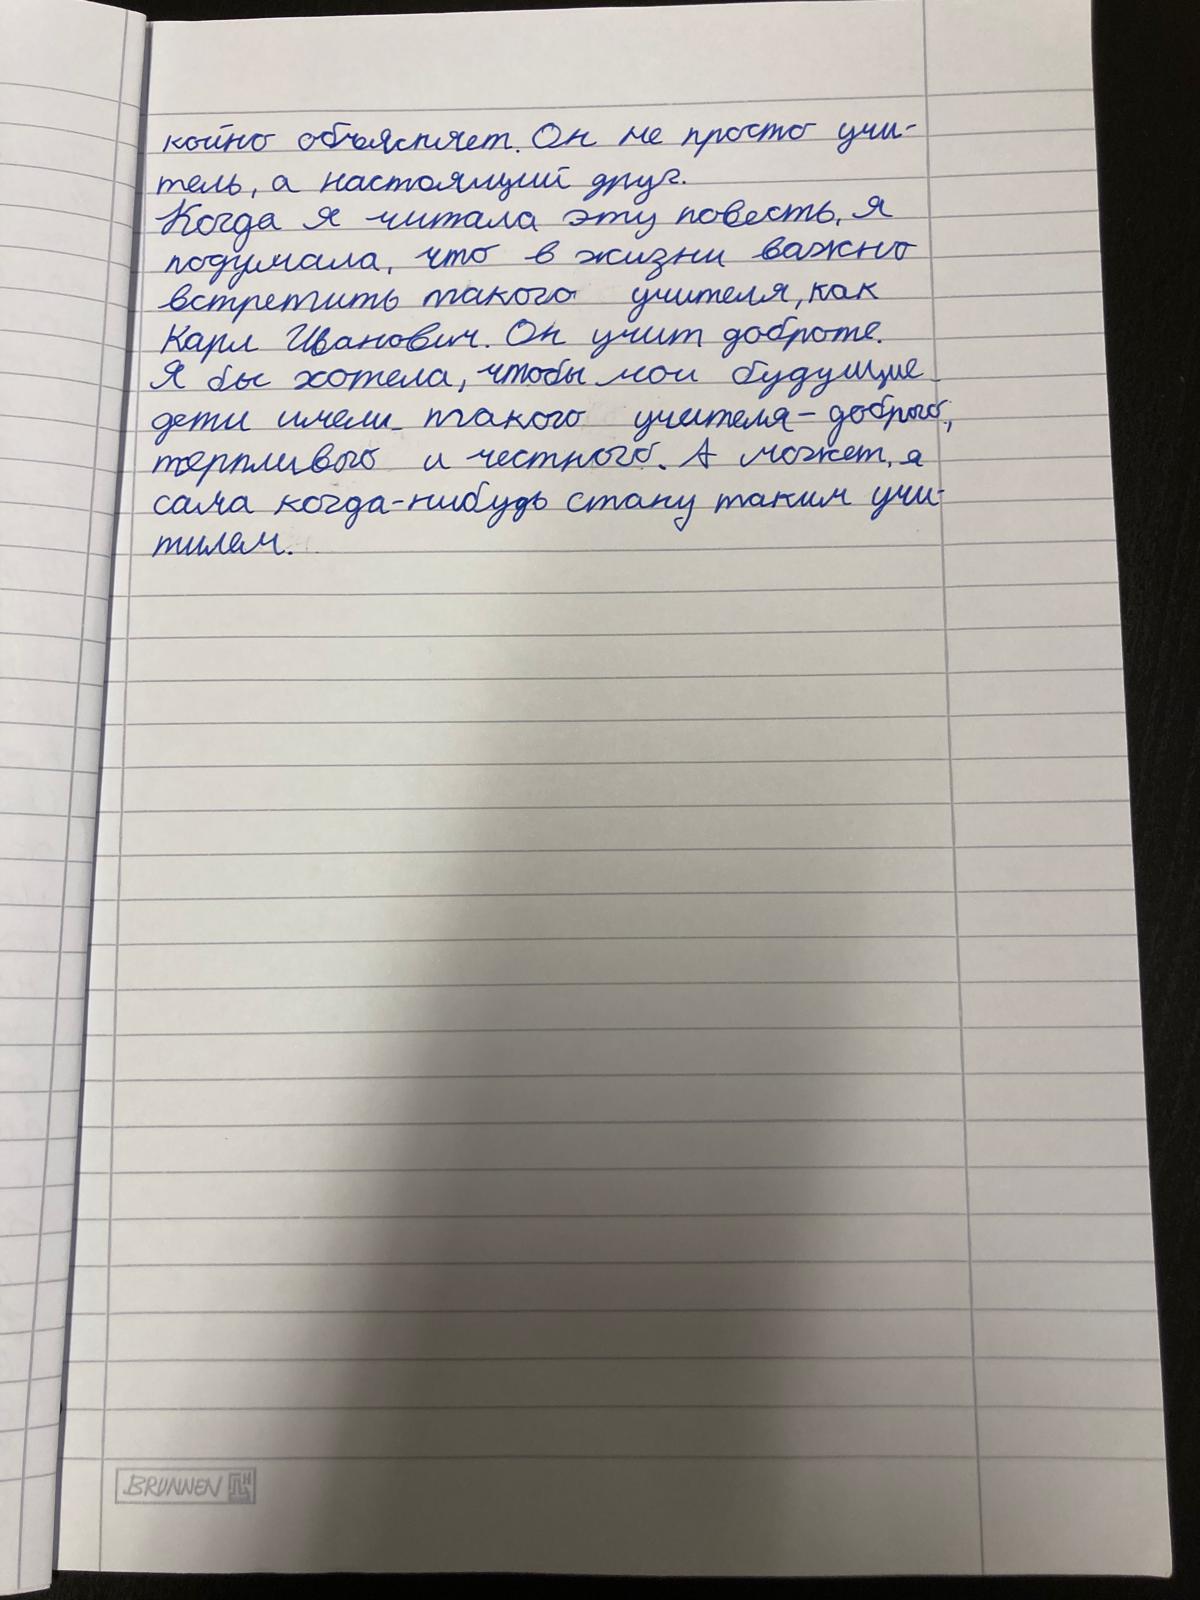 койно объясняет. Он не просто учи-
тель, а настоящий друг.
Когда я читала эту повесть, я
подумала, что в жизни важно
встретить такого учителя, как
Карл Иванович. Он учит доброте.
Я бы хотела, чтобы мои будущие
дети имели такого учителя – доброго,
терпливого и честного. А может, я
сама когда-нибудь стану таким учи-
тилем.
BRUNNEN